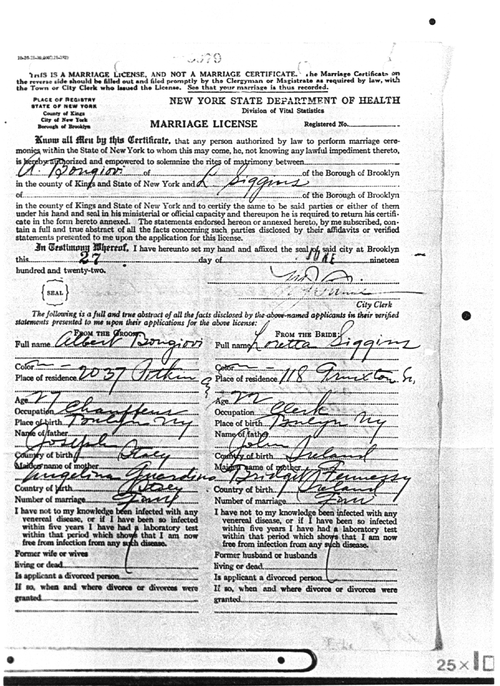 THIS IS A MARRIAGE LICENSE, AND NOT A MARRIAGE CERTIFICATE. The Marriage Certificate on
the reverse side should be filled out and filed promptly by the Clergyman or Magistrate as required by law, with
the Town or City Clerk who issued the License. See that your marriage is thus recorded.
PLACE OF REGISTRY
STATE OF NEW YORK
County of Kings
City of New York
Borough of Brooklyn
NEW YORK STATE DEPARTMENT OF HEALTH
Division of Vital Statistics
MARRIAGE LICENSE
Registered No.
Know all Men by this Certificate, that any person authorized by law to perform marriage cere-
monies within the State of New York to whom this may come, he, not knowing any lawful impediment thereto,
is hereby authorized and empowered to solemnize the rites of matrimony between
A. Bongiovi of of the Borough of Brooklyn
in the county of Kings and State of New York and L. Siggins
of of the Borough of Brooklyn
in the county of Kings and State of New York and to certify the same to be said parties or either of them
under his hand and seal in his ministerial or official capacity and thereupon he is required to return his certifi-
cate in the form hereto annexed. The statements endorsed hereon or annexed hereto, by me subscribed, con-
tain a full and true abstract of all the facts concerning such parties disclosed by their affidavits or verified
statements presented to me upon the application for this license.
In Testimony Whereof, I have hereunto set my hand and affixed the seal of said city at Brooklyn
this 27 day of JUNE nineteen
hundred and twenty-two.
SEAL
City Clerk
The following is a full and true abstract of all the facts disclosed by the above-named applicants in their verified
statements presented to me upon their applications for the above license:
FROM THE GROOM
Full name Albert Bongiovi
Color
Place of residence 2037 Pitkin
Age 27
Occupation Chauffeur
Place of birth Brooklyn NY
Name of father Joseph
Country of birth Italy
Maiden name of mother Angelina Guardino
Country of birth Italy
Number of marriage First
I have not to my knowledge been infected with any
venereal disease, or if I have been so infected
within five years I have had a laboratory test
within that period which shows that I am now
free from infection from any such disease.
Former wife or wives
living or dead
Is applicant a divorced person
If so, when and where divorce or divorces were
granted
FROM THE BRIDE
Full name Loretta Siggins
Color
Place of residence 118
Age
Occupation Clerk
Place of birth Brooklyn NY
Name of father John
Country of birth Ireland
Maiden name of mother Bridget Hennessy
Country of birth Ireland
Number of marriage First
I have not to my knowledge been infected with any
venereal disease, or if I have been so infected
within five years I have had a laboratory test
within that period which shows that I am now
free from infection from any such disease.
Former husband or husbands
living or dead
Is applicant a divorced person
If so, when and where divorce or divorces were
granted
25X